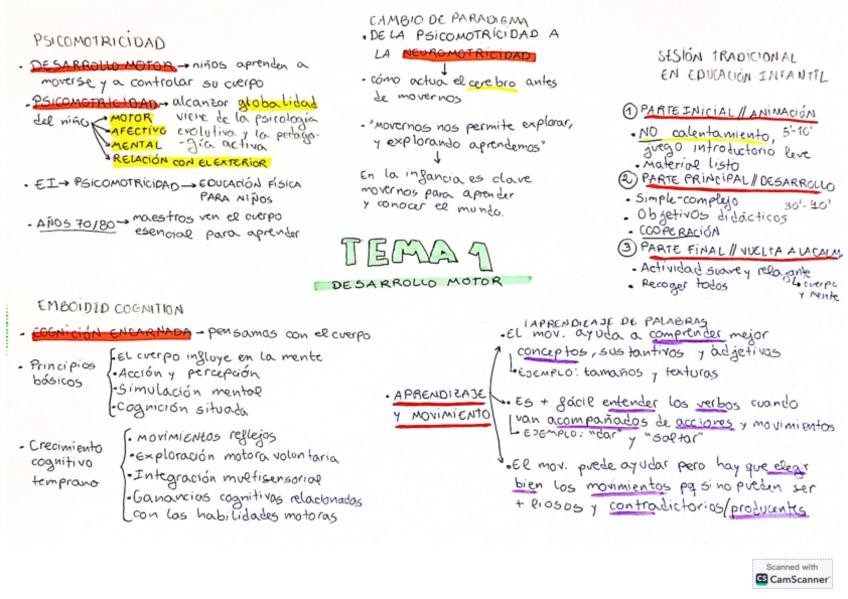 PSICOMOTRICIDAD
· DESARROLLO MOTOR → niños aprenden a
moverse y a controlar su cuerpo
· PSICOMOTRICIDAD → alcanzar globalidad
del niño
MOTOR
AFECTIVO
MENTAL
RELACIÓN CON EL EXTERIOR
viene de la psicología
evolutiva y la pedago-
gía activa
· EI → PSICOMOTRICIDAD → EDUCACIÓN FÍSICA
PARA NIÑOS
· AÑOS 70/80 → maestros ven el cuerpo
esencial para aprender
CAMBIO DE PARADIGMA
· DE LA PSICOMOTRICIDAD A
LA NEUROMOTRICIDAD
↓
· cómo actua el cerebro antes
de movernos
· "Movernos nos permite explorar,
y explorando aprendemos"
↓
En la infancia es clave
movernos para aprender
y conocer el mundo.
SESIÓN TRADICIONAL
EN EDUCACIÓN INFANTIL
① PARTE INICIAL // ANIMACIÓN
· NO calentamiento, 5'-10'
juego introductorio leve
· Material listo
② PARTE PRINCIPAL // DESARROLLO
· Simple-complejo 30'-40'
· Objetivos didácticos
· COOPERACIÓN
③ PARTE FINAL // VUELTA A LA CALM
· Actividad suave y relajante
↳ cuerpo
y mente
· Recoger todos
TEMA 1
DESARROLLO MOTOR
EMBOIDID COGNITION
· COGNICIÓN ENCARNADA → pensamos con el cuerpo
· Principios
básicos
· El cuerpo influye en la mente
· Acción y percepción
· Simulación mental
· Cognición situada
· Crecimiento
cognitivo
temprano
· MOVIMIENTOS reflejos
· Exploración motora voluntaria
· Integración multisensorial
· Ganancias cognitivas relacionadas
con las habilidades motoras
· APRENDIZAJE
Y MOVIMIENTO
(APRENDIZAJE DE PALABRAS
· EL mov. ayuda a comprender mejor
conceptos, sustantivos y adjetivos
· EJEMPLO: tamaños y texturas
· Es + fácil entender los verbos cuando
van acompañados de acciones y movimientos
EJEMPLO: "dar" y "saltar"
· El mov. puede ayudar pero hay que elegir
bien los movimientos pq si no pueden ser
+ liosos y contradictorios/producentes
Scanned with
CS CamScanner